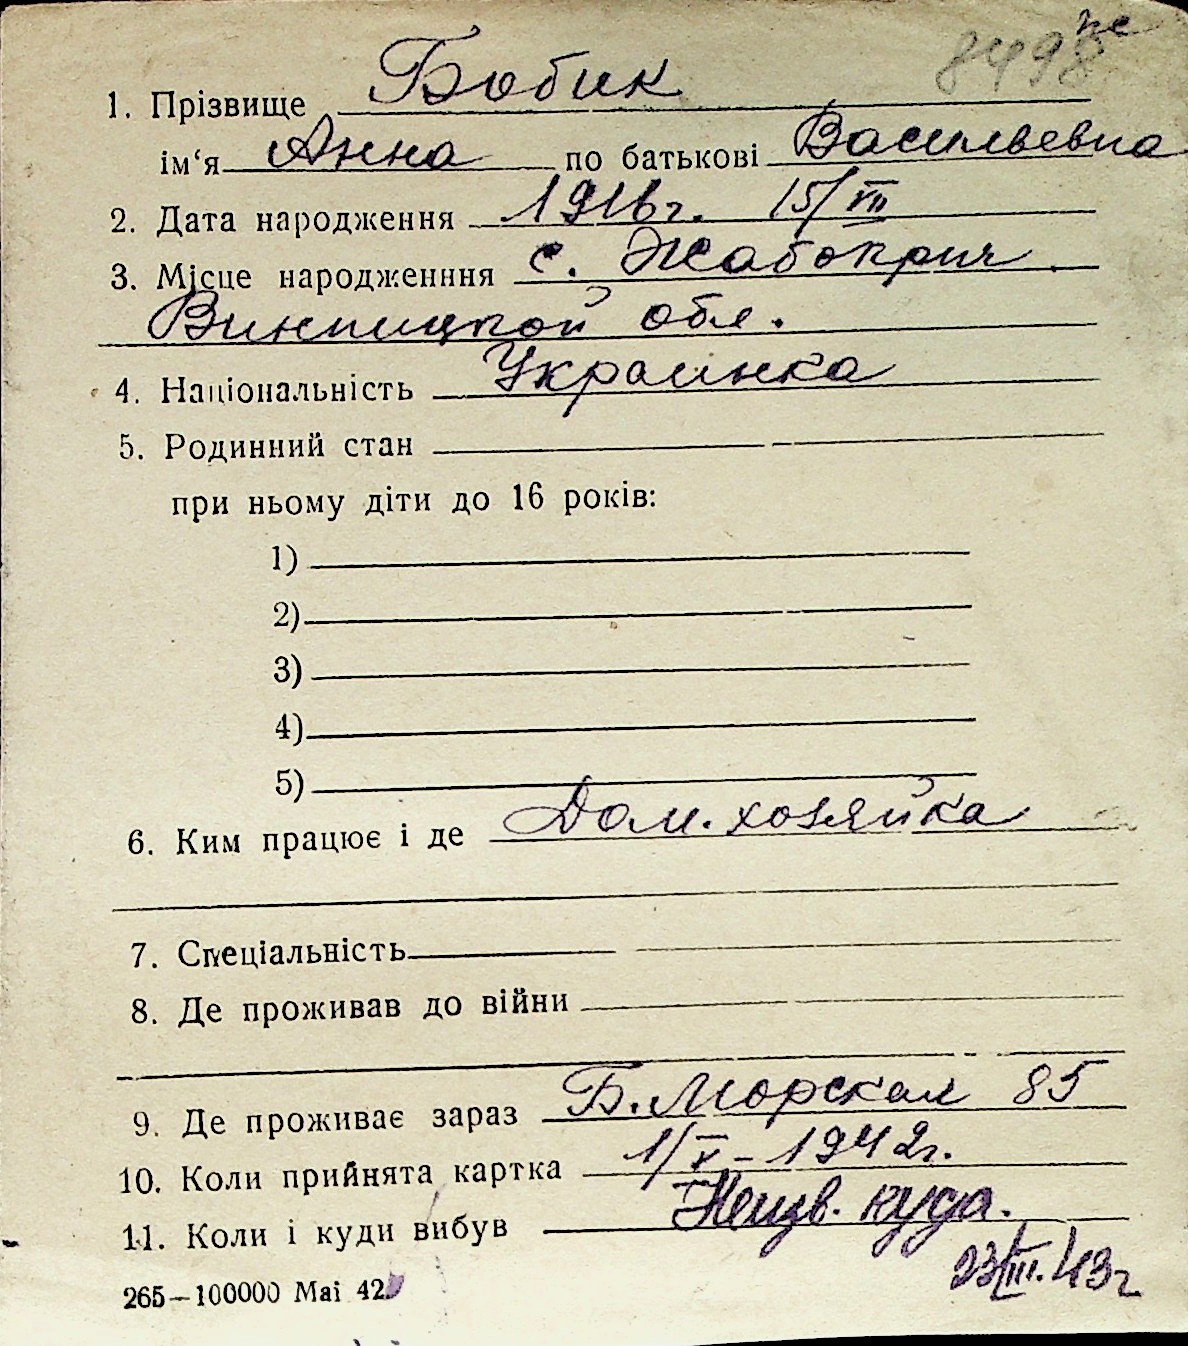 8498
1. Прізвище Бобик
ім‘я Анна по батькові Васильевна
2. Дата народження 1916г. 15/VII
3. Місце народженння с. Жабокрич
Винницкой обл.
4. Національність Украинка
5. Родинний стан
при ньому діти до 16 років:
1)
2)
3)
4)
5)
6. Ким працює і де Дом. хозяйка
7. Спеціальність
8. Де проживав до війни
9. Де проживає зараз Б. Морская 85
10. Коли прийнята картка 1/X – 1942г.
11. Коли і куди вибув Неизв. куда.
23/III.43г
265—100000 Mai 42